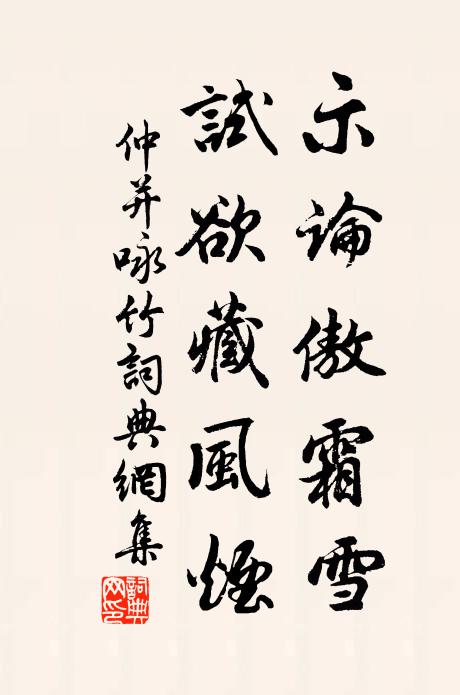 示論傲霜雪
試欲藏風煙
仲并咏竹詞典網集
詞典网印